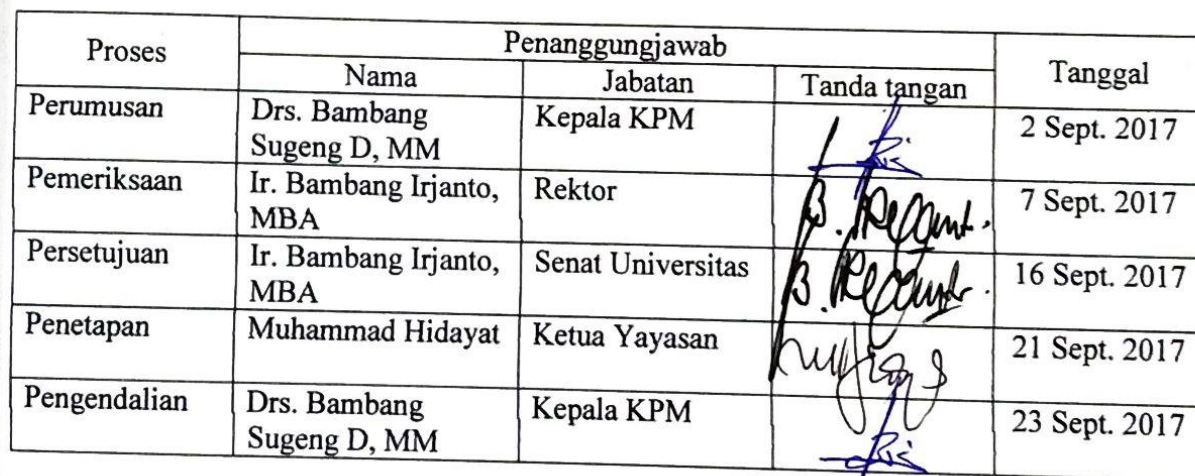 Proses
Penanggungjawab
Tanggal
Nama
Jabatan
Tanda tangan
Perumusan
Drs. Bambang
Sugeng D, MM
Kepala KPM
2 Sept. 2017
Pemeriksaan
Ir. Bambang Irjanto,
MBA
Rektor
7 Sept. 2017
Persetujuan
Ir. Bambang Irjanto,
MBA
Senat Universitas
16 Sept. 2017
Penetapan
Muhammad Hidayat
Ketua Yayasan
21 Sept. 2017
Pengendalian
Drs. Bambang
Sugeng D, MM
Kepala KPM
23 Sept. 2017